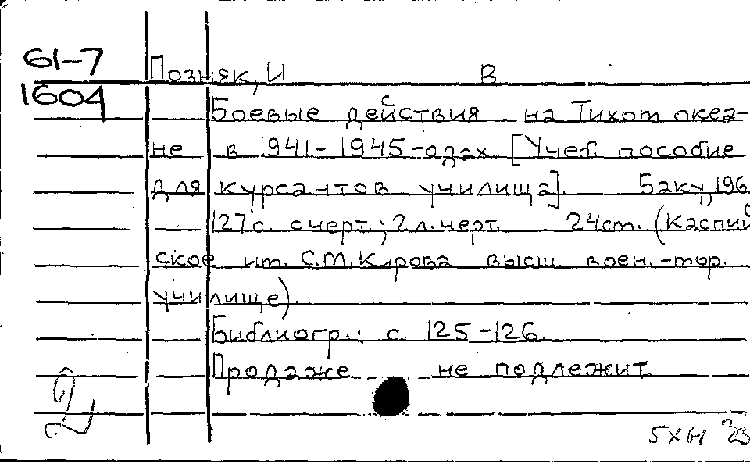 61-7
1604
Позняк, И В
Боевые действия на Тихом океа-
не в 941-1945-одах [Учеб. пособие
для курсантов училища]. Баку, 196
127 с. с черт.; 2 л. черт. 24 см. (Каспий
ское им. С.М. Кирова высш воен.-мор.
училище).
Библиогр.: с 125-126
Продаже не подлежит
2
5 XII